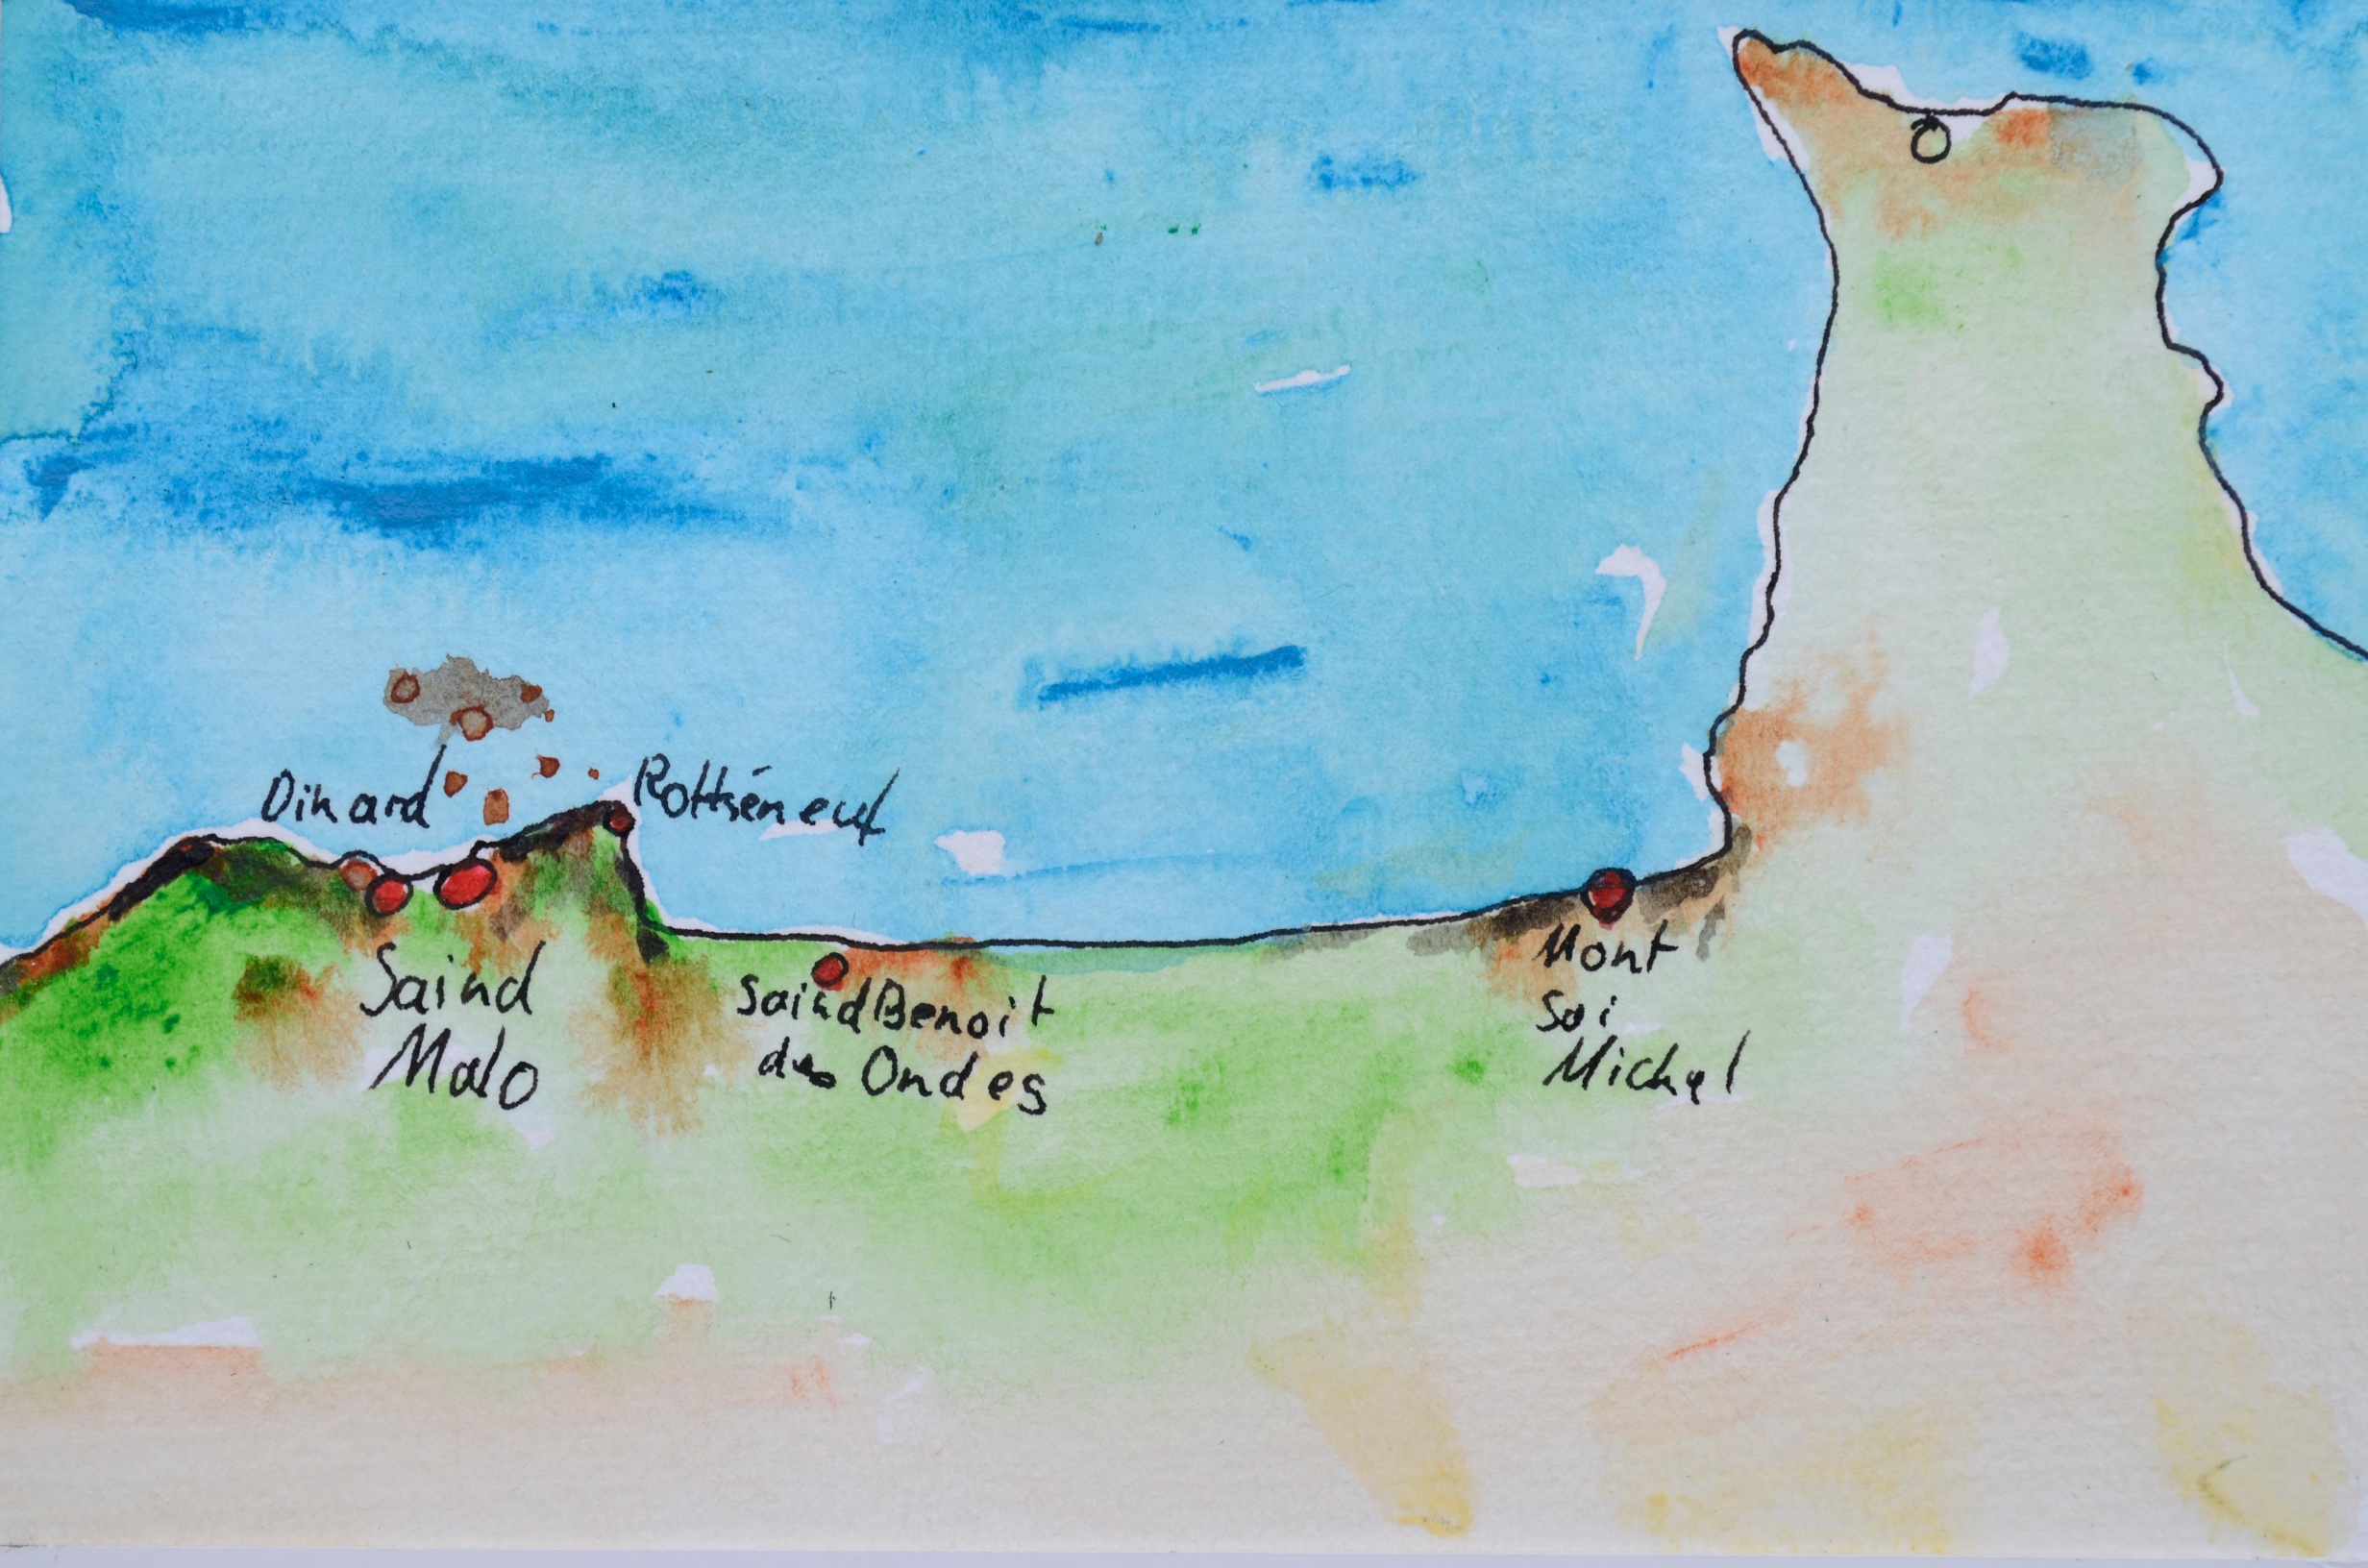 Dinard
Rothéneuf
Saind
Malo
Saind Benoit
des Ondes
Mont
Sai
Michel